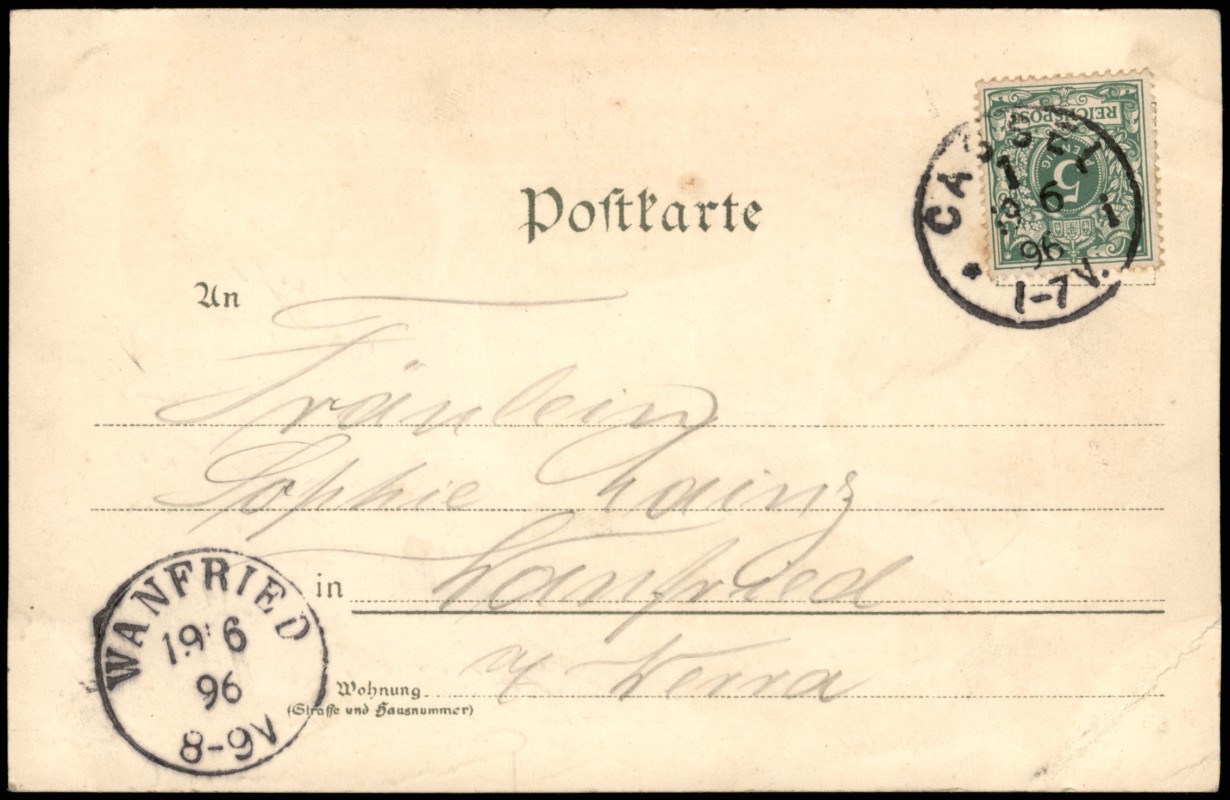 REICHSPOST
5
PFENNIG
CASSEL 1
19 6
96
1-7 V.
Postkarte
An
Fräulein
Sophie
in Wanfried
a/ Werra
Wohnung
(Straße und Hausnummer)
WANFRIED
19 6
96
8-9V